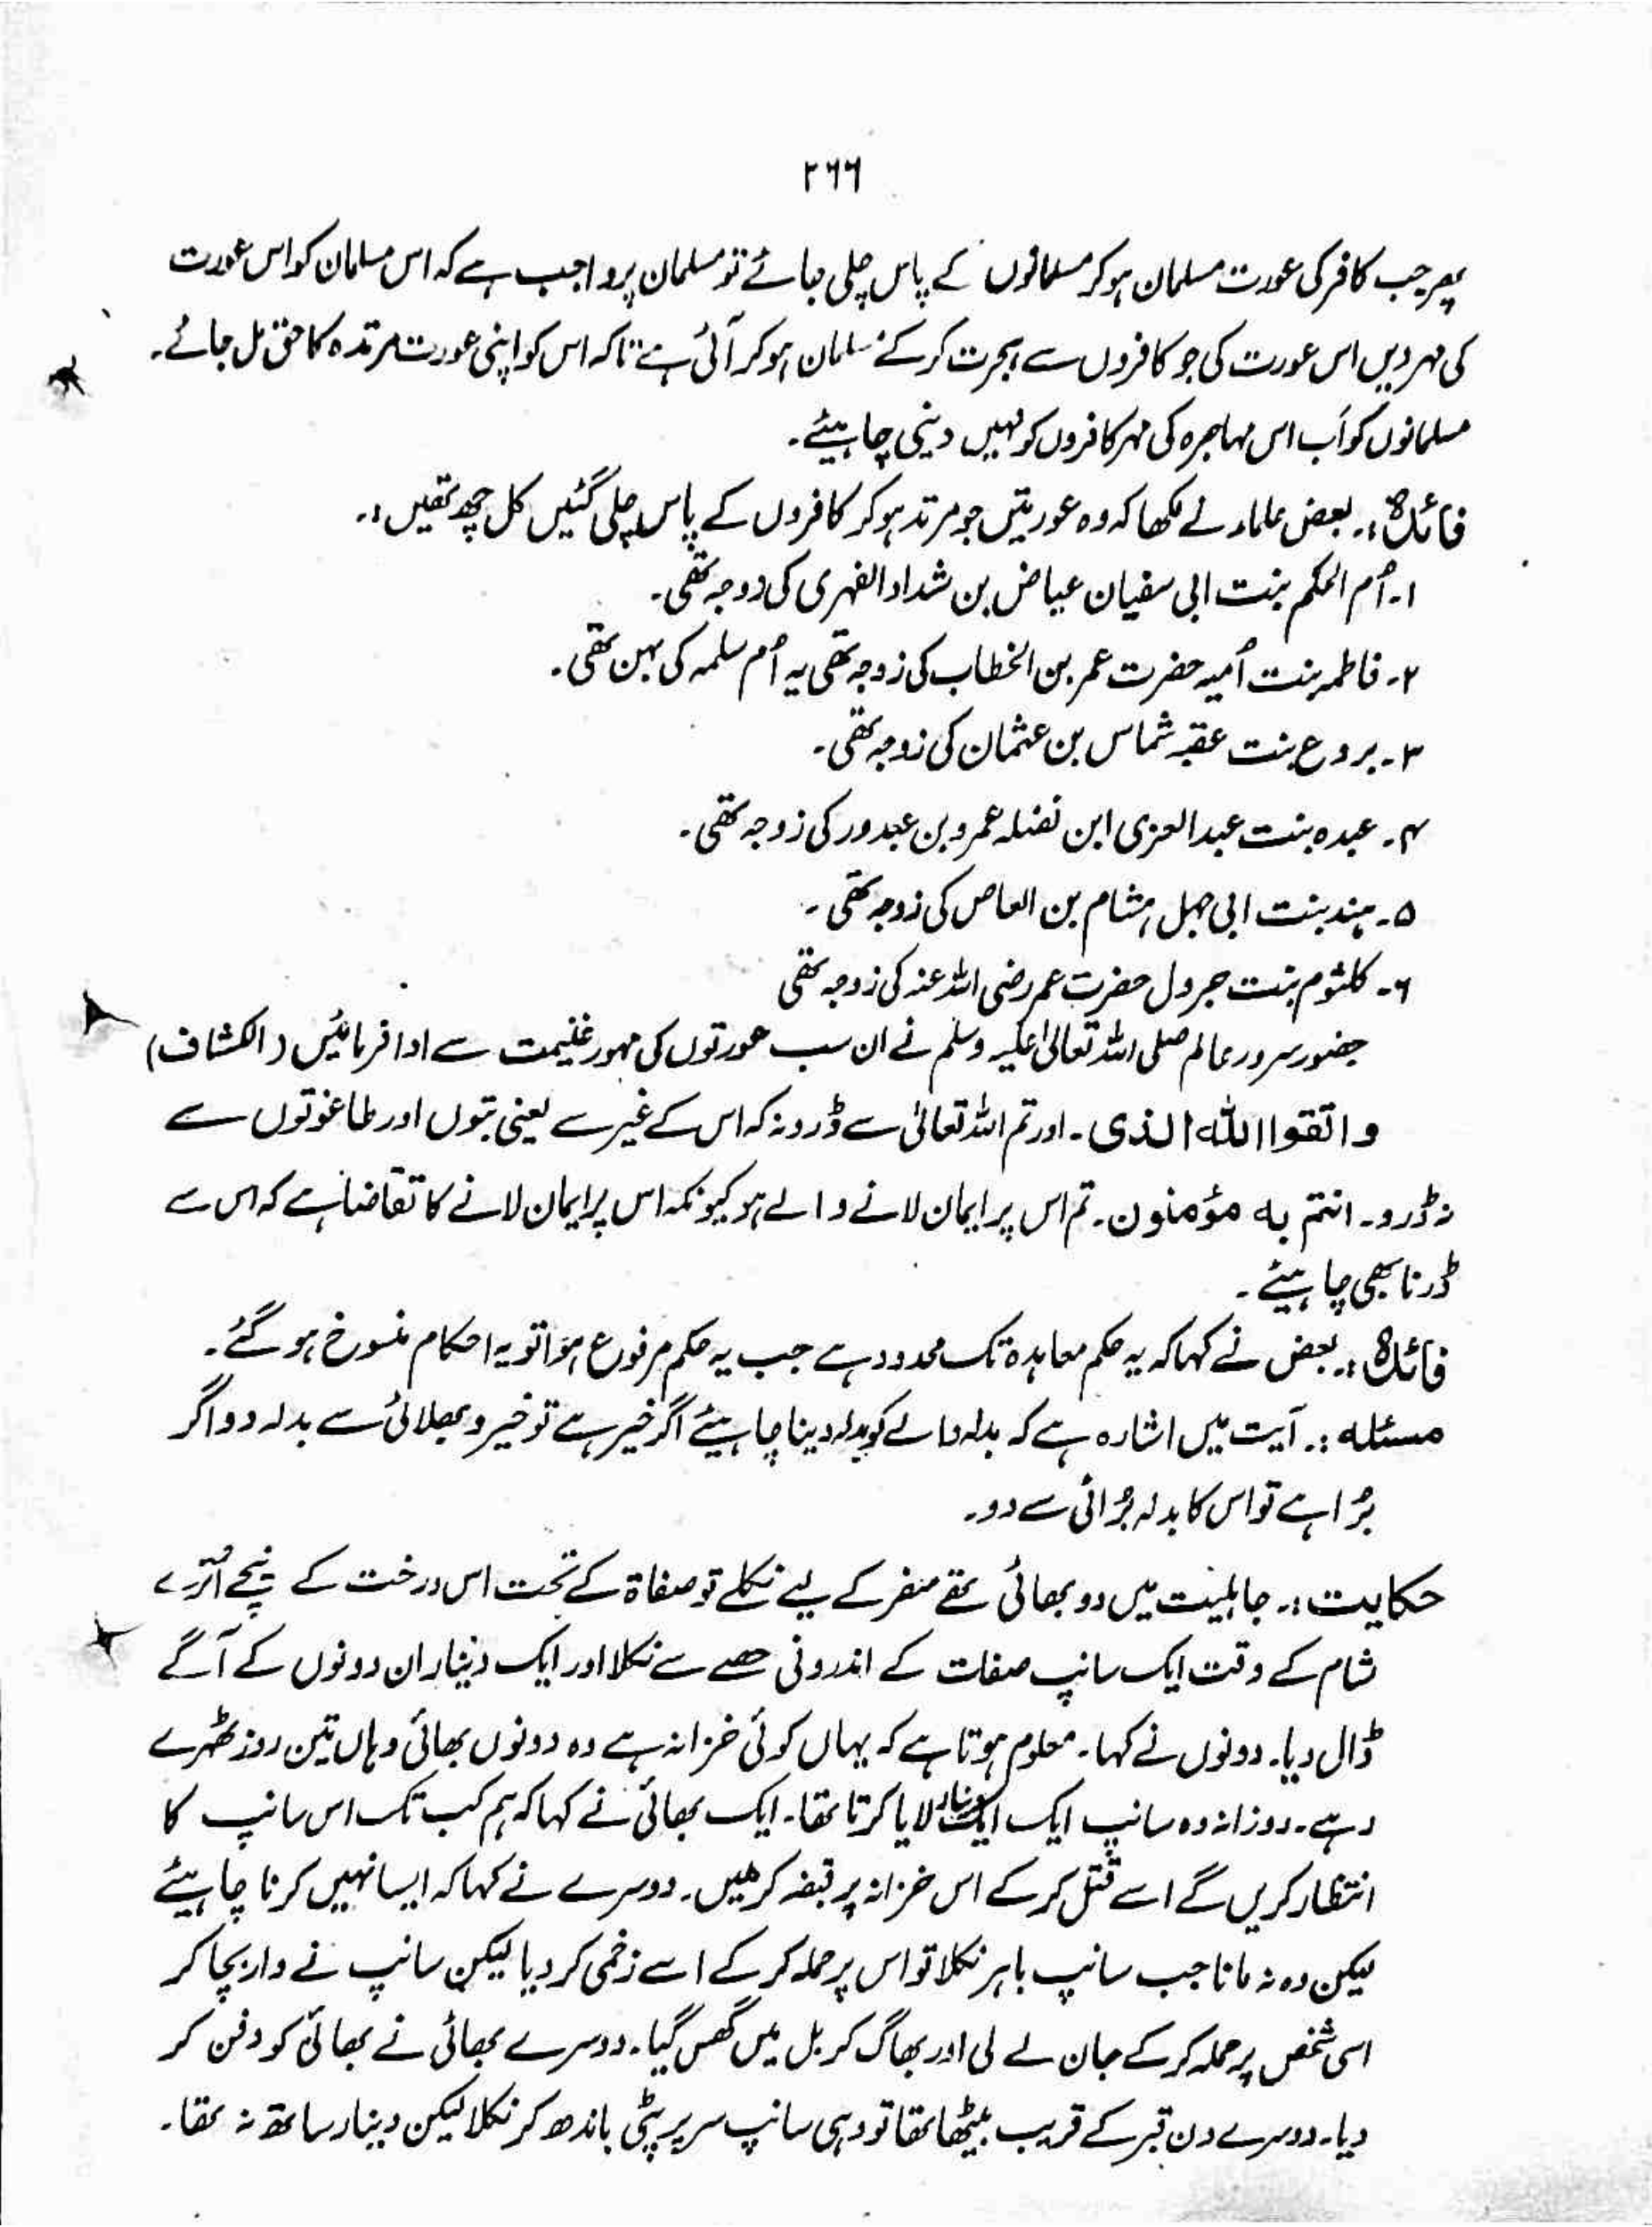 ۲۶۶
پھر جب کافر کی عورت مسلمان ہو کر مسلمانوں کے پاس چلی جائے تو مسلمان پر واجب ہے کہ اس مسلمان کو اس عورت
کی مہر دیں اس عورت کی جو کافروں سے ہجرت کر کے مسلمان ہو کر آئی ہے تاکہ اس کو اپنی عورت مرتدہ کا حق مل جائے۔
مسلمانوں کو اَب اس مہاجرہ کی مہر کافروں کو نہیں دینی چاہیئے۔
فائدہ:۔ بعض علماء نے لکھا کہ وہ عورتیں جو مرتد ہو کر کافروں کے پاس چلی گئیں کل چھ تھیں:۔
۱۔ اُم الحکم بنت ابی سفیان عیاض بن شداد الفہری کی زوجہ تھی۔
۲۔ فاطمہ بنت اُمیہ حضرت عمر بن الخطاب کی زوجہ تھی یہ اُم سلمہ کی بہن تھی۔
۳۔ بروع بنت عقبہ شماس بن عثمان کی زوجہ تھی۔
۴۔ عبدہ بنت عبدالعزی ابن نضلہ عمرو بن عبدور کی زوجہ تھی۔
۵۔ ہند بنت ابی جہل ہشام بن العاص کی زوجہ تھی۔
۶۔ کلثوم بنت جرول حضرت عمر رضی اللہ عنہ کی زوجہ تھی
حضور سرور عالم صلی اللہ تعالیٰ علیہ وسلم نے ان سب عورتوں کی مہور غنیمت سے ادا فرمائیں (الکشاف)
واتقوا اللہ الذی۔ اور تم اللہ تعالیٰ سے ڈرو نہ کہ اس کے غیر سے یعنی بتوں اور طاغوتوں سے
نہ ڈرو۔ انتم بہ مؤمنون۔ تم اس پر ایمان لانے والے ہو کیونکہ اس پر ایمان لانے کا تقاضا ہے کہ اس سے
ڈرنا بھی چاہیئے۔
فائدہ:۔ بعض نے کہا کہ یہ حکم معاہدہ تک محدود ہے جب یہ حکم مرفوع ہوا تو یہ احکام منسوخ ہو گئے۔
مسئلہ:۔ آیت میں اشارہ ہے کہ بدلہ والے کو بدلہ دینا چاہیئے اگر خیر ہے تو خیر و بھلائی سے بدلہ دو اگر
بُرا ہے تو اس کا بدلہ بُرائی سے دو۔
حکایت:۔ جاہلیت میں دو بھائی تھے سفر کے لیے نکلے تو صفاۃ کے تحت اس درخت کے نیچے اُترے
شام کے وقت ایک سانپ صفات کے اندرونی حصے سے نکلا اور ایک دینار ان دونوں کے آگے
ڈال دیا۔ دونوں نے کہا۔ معلوم ہوتا ہے کہ یہاں کوئی خزانہ ہے وہ دونوں بھائی وہاں تین روز ٹھہرے
رہے۔ روزانہ وہ سانپ ایک ایک دینار لایا کرتا تھا۔ ایک بھائی نے کہا کہ ہم کب تک اس سانپ کا
انتظار کریں گے اسے قتل کر کے اس خزانہ پر قبضہ کر لیں۔ دوسرے نے کہا کہ ایسا نہیں کرنا چاہیئے
لیکن وہ نہ مانا جب سانپ باہر نکلا تو اس پر حملہ کر کے اسے زخمی کر دیا لیکن سانپ نے وار بچا کر
اسی شخص پر حملہ کر کے جان لے لی اور بھاگ کر بل میں گھس گیا۔ دوسرے بھائی نے بھائی کو دفن کر
دیا۔ دوسرے دن قبر کے قریب بیٹھا تھا تو وہی سانپ سر پر پٹی باندھ کر نکلا لیکن دینار ساتھ نہ تھا۔